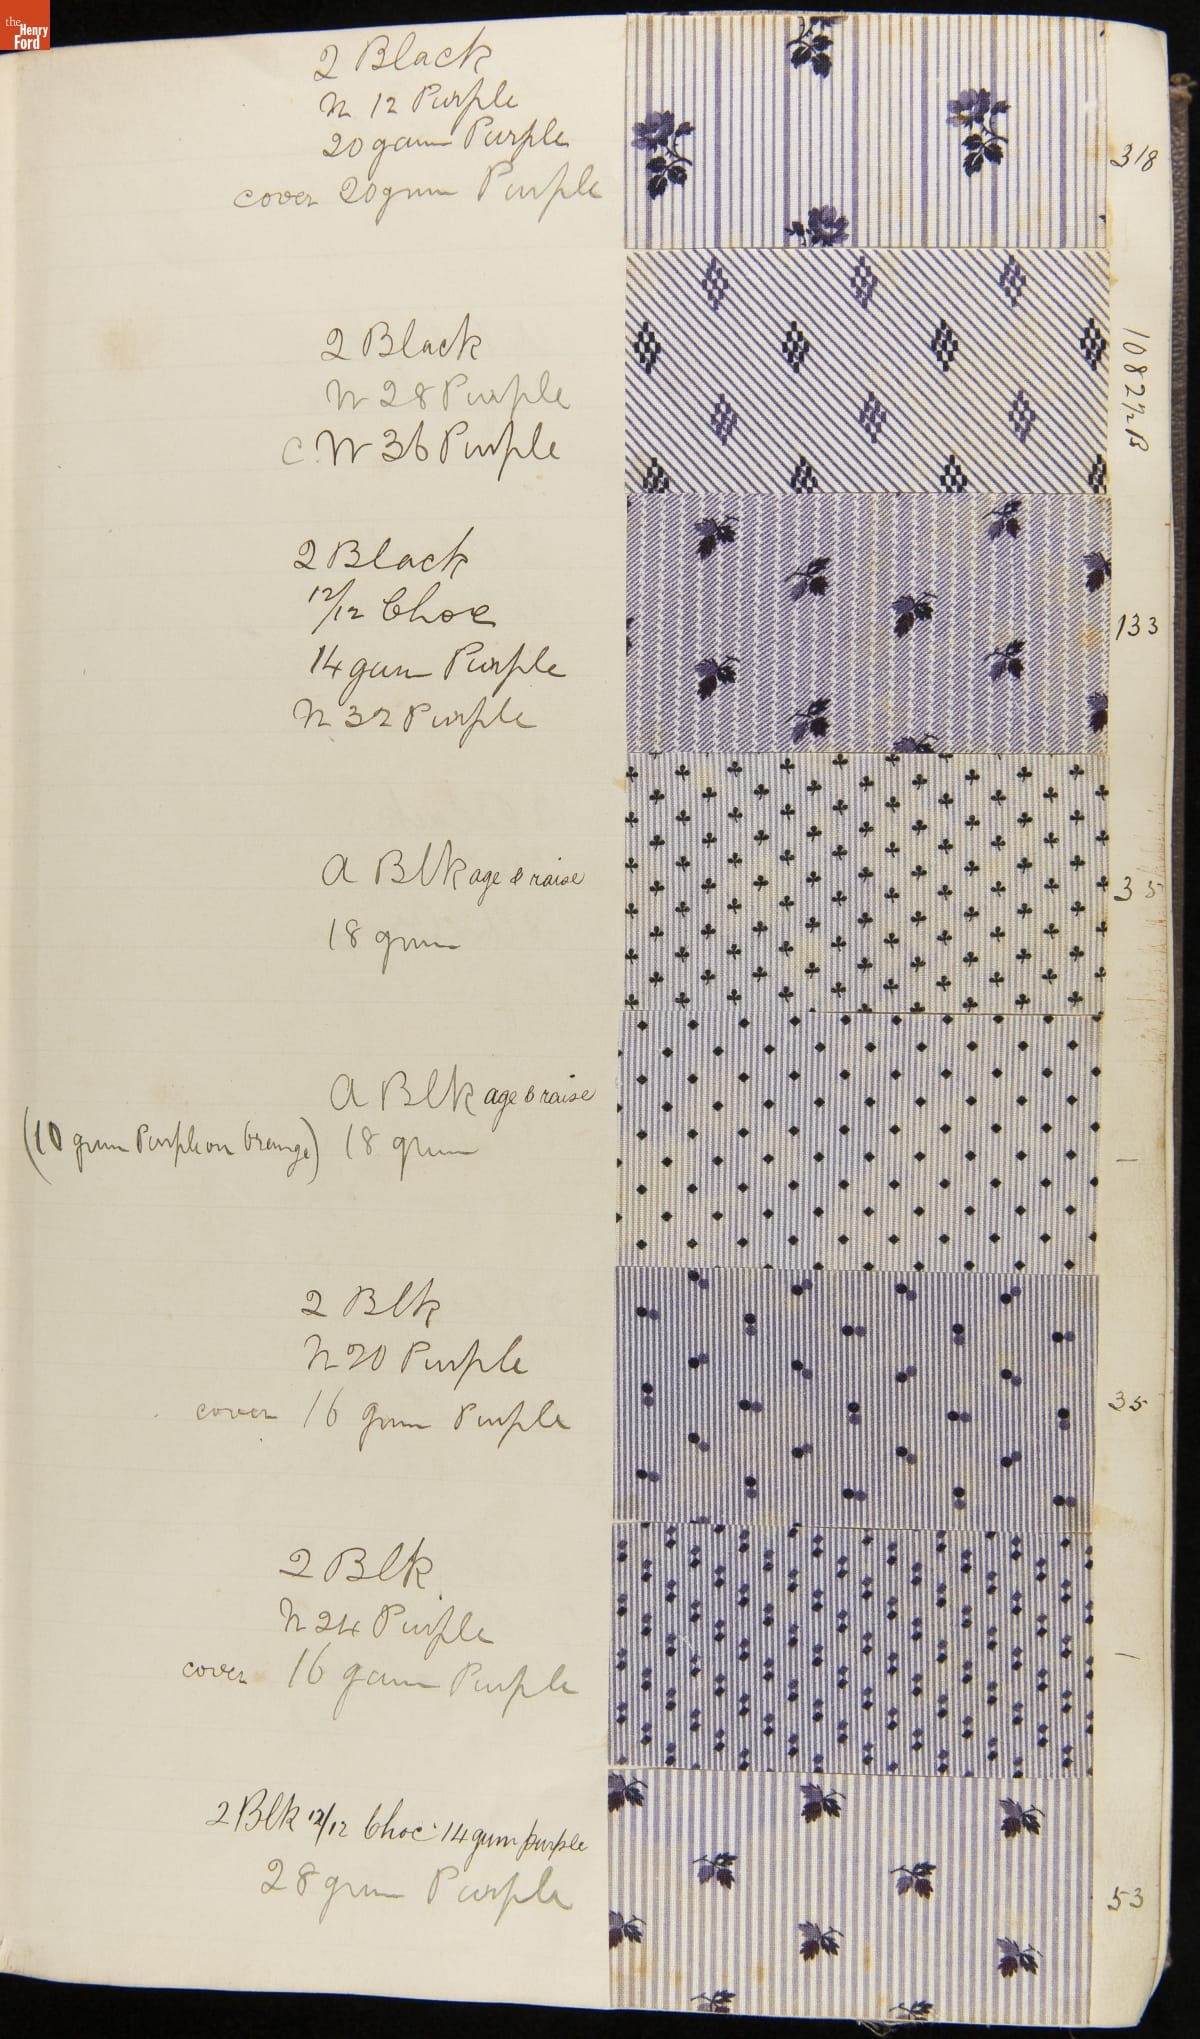 the
Henry
Ford
2 Black
N 12 Purple
20 gum Purple
cover 20 gum Purple
318
2 Black
N 28 Purple
c. N 36 Purple
1082½B
2 Black
12/12 Choc
14 gum Purple
N 32 Purple
133
A Blk age & raise
18 gum
35
A Blk age & raise
(10 gum Purple on Orange) 18 gum
—
2 Blk
N 20 Purple
cover 16 gum Purple
35
2 Blk
N 24 Purple
cover 16 gum Purple
—
2 Blk 12/12 Choc 14 gum purple
28 gum Purple
53